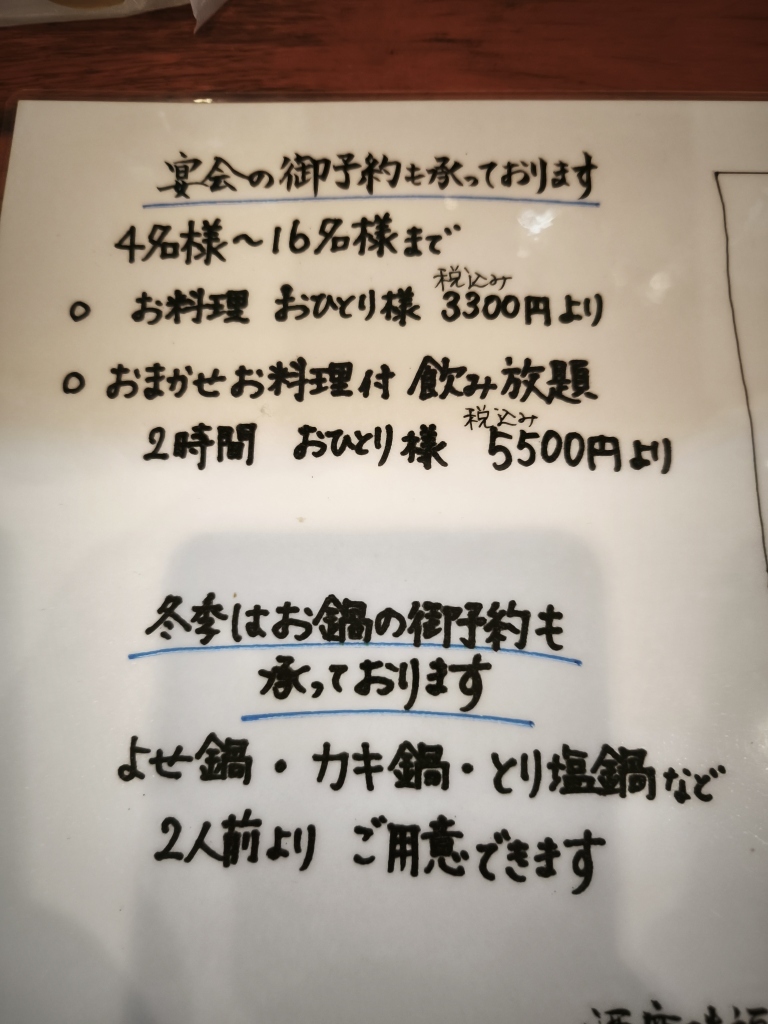 宴会の御予約も承っております
4名様〜16名様まで
○ お料理 おひとり様 税込み 3300円より
○ おまかせお料理付 飲み放題
2時間 おひとり様 税込み 5500円より
冬季はお鍋の御予約も
承っております
よせ鍋・カキ鍋・とり塩鍋など
2人前より ご用意できます